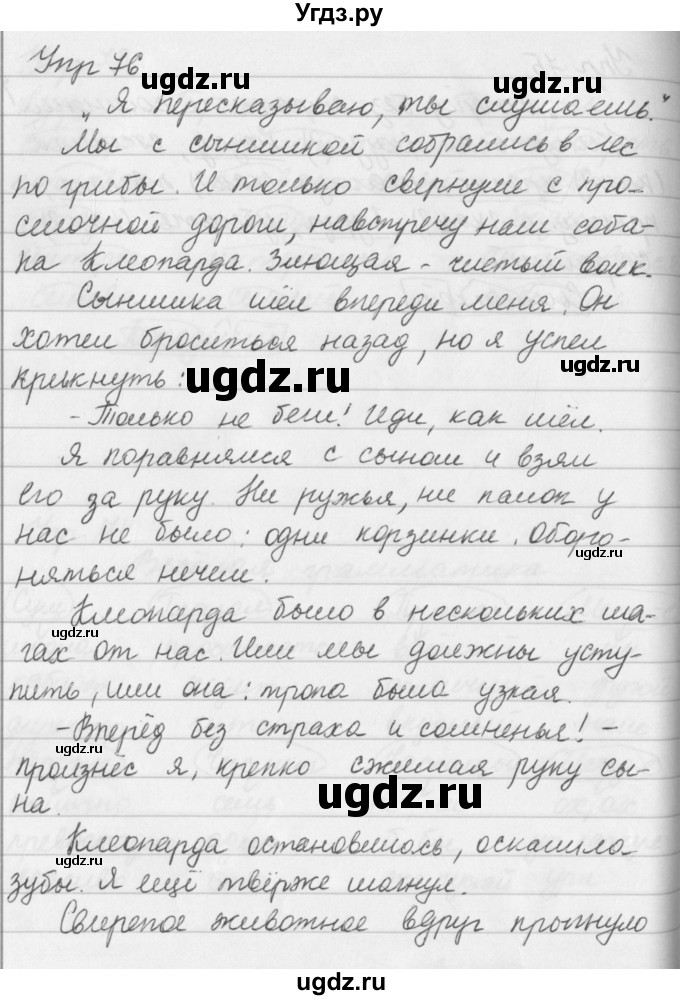 Угдз.ру
Упр 76
„Я пересказываю, ты слушаешь."
Мы с сынишкой собрались в лес
по грибы. И только свернули с про-
сёлочной дороги, навстречу нам соба-
ка Клеопарда. Злющая - чистый волк.
Сынишка шёл впереди меня. Он
хотел броситься назад, но я успел
крикнуть:
- Только не беги! Иди, как шёл.
Я поравнялся с сыном и взял
его за руку. Ни ружья, ни палок у
нас не было: одни корзинки. Оборо-
няться нечем.
Клеопарда было в нескольких ша-
гах от нас. Или мы должны усту-
пить, или она: тропа была узкая.
- Вперёд без страха и сомненья! -
произнёс я, крепко сжимая руку сы-
на.
Клеопарда остановилась, оскалила
зубы. Я ещё твёрже шагнул.
Свирепое животное вдруг прыгнуло
ugdz.ru
ugdz.ru
ugdz.ru
ugdz.ru
ugdz.ru
ugdz.ru
ugdz.ru
ugdz.ru
ugdz.ru
ugdz.ru
ugdz.ru
ugdz.ru
ugdz.ru